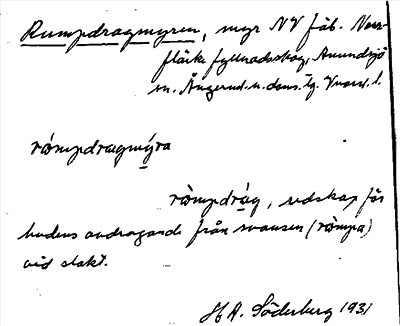 Rumpdragmyren, myr NV fäb. Norr-
fläke fyllnadsskog, Anundsjö
sn. Ångerml. n. doms. tg. Vnorrl. l.
römpdragmýra
römpdräg, redskap för
hudens avdragande från svansen (römpa)
vid slakt.
H A. Söderberg 1931